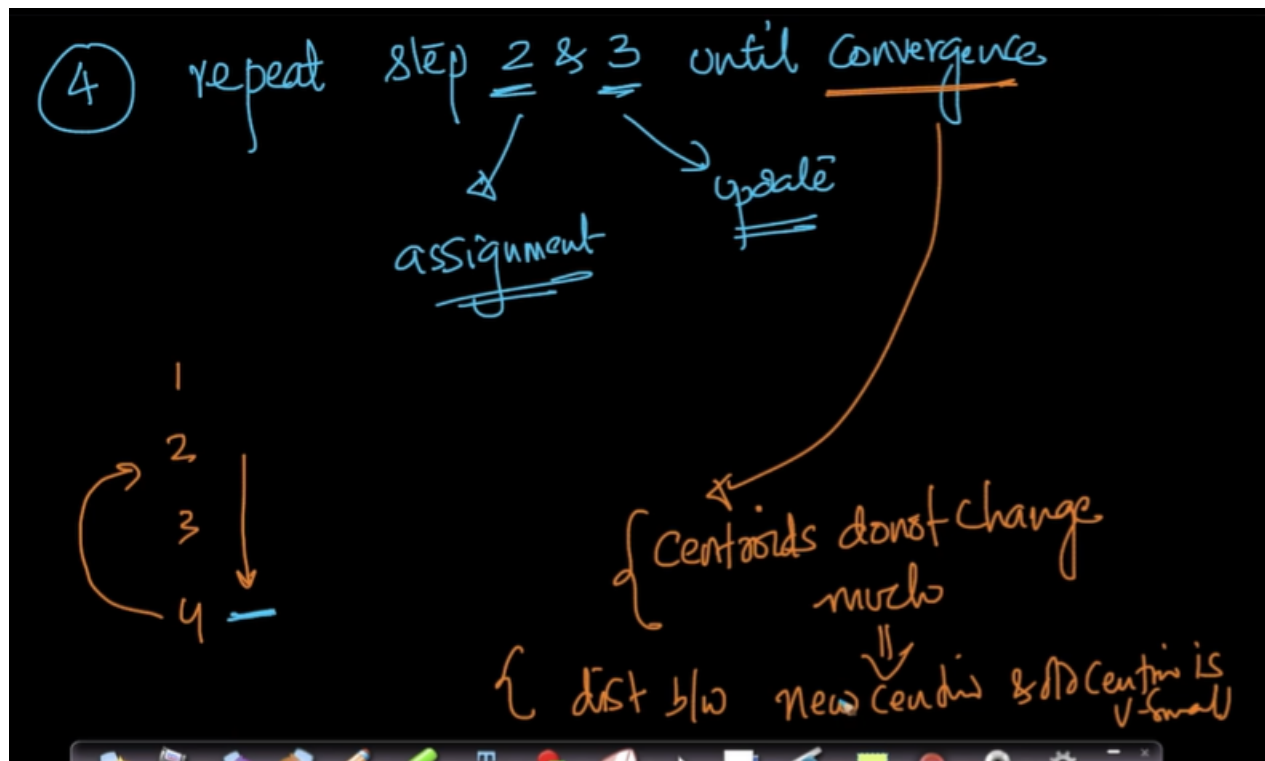 4 repeat step 2 & 3 until convergence
update
assignment
1
2
3
4
centroids donot change
much
dist b/w new centrio & old centrio is
v-small